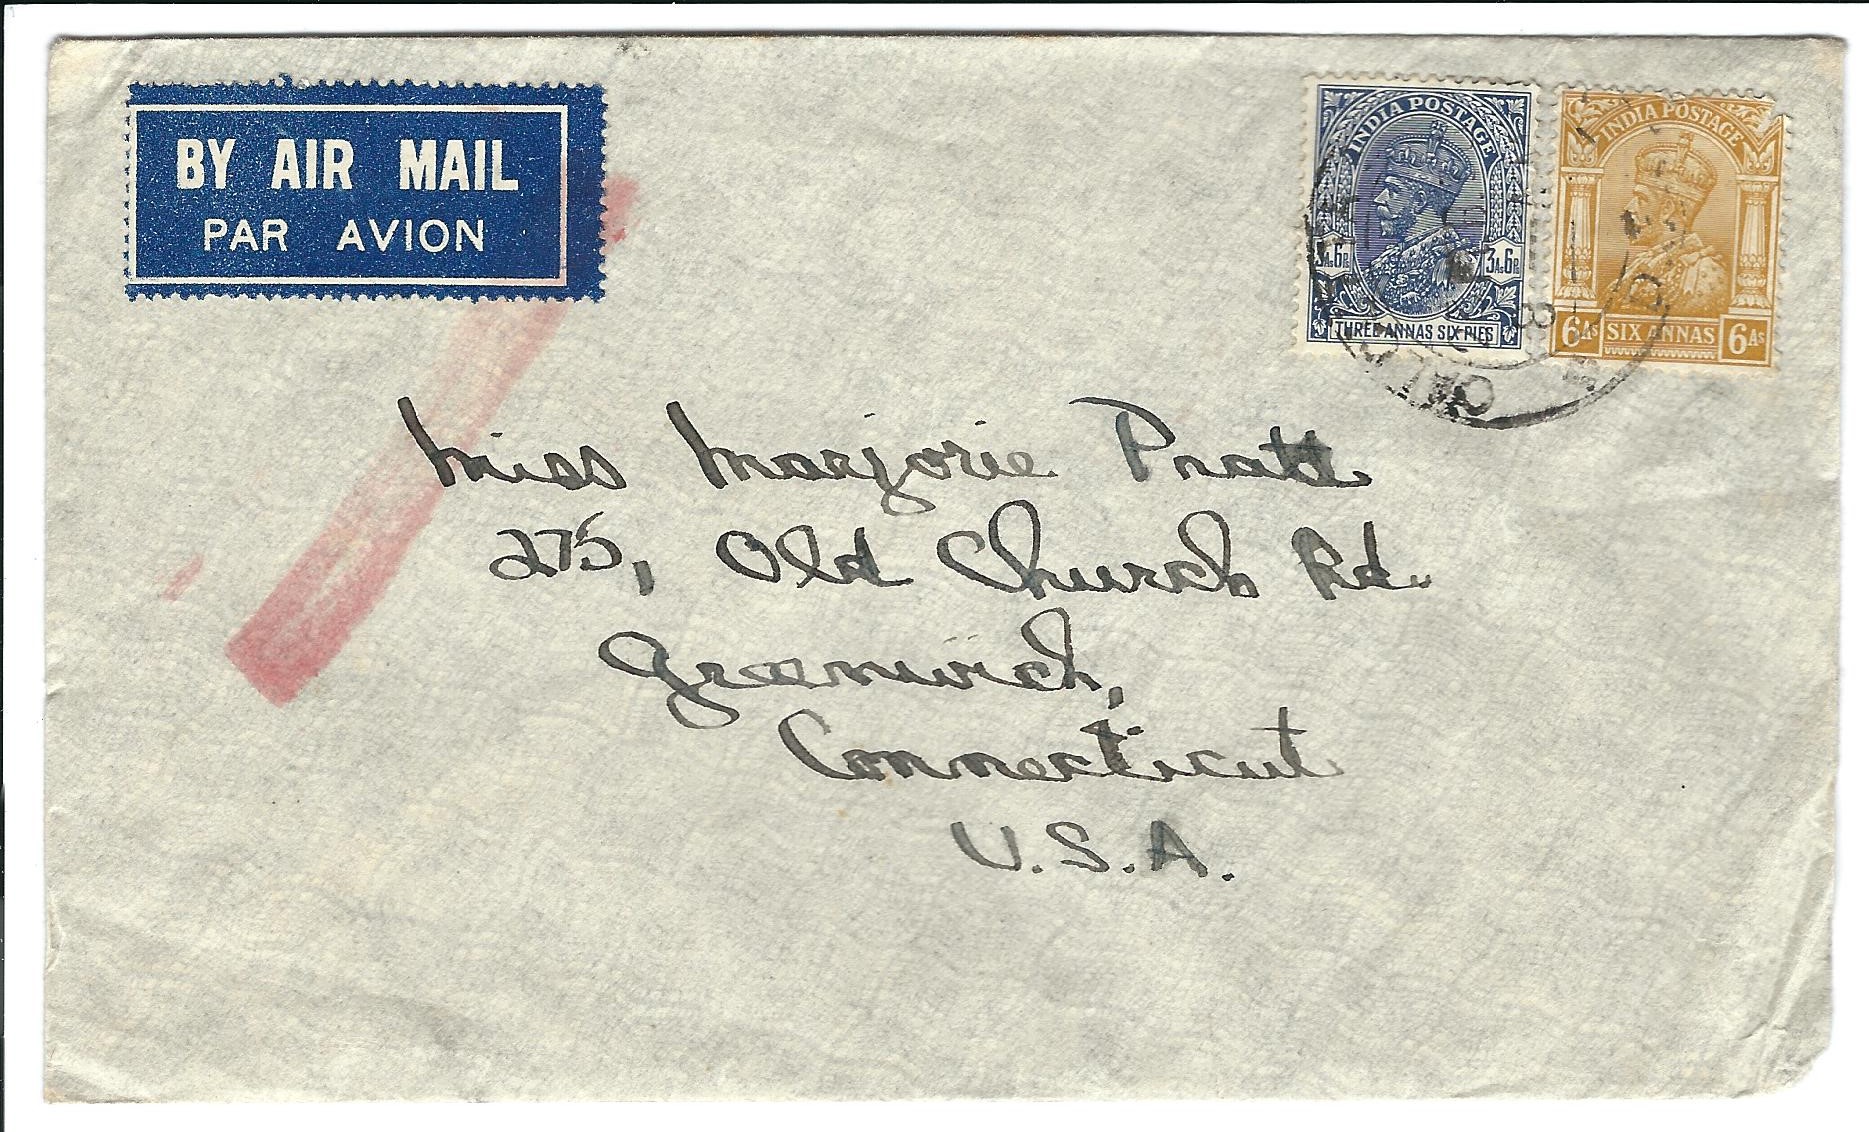 BY AIR MAIL
PAR AVION
INDIA POSTAGE
3As.6P.
3As.6P.
THREE ANNAS SIX PIES
INDIA POSTAGE
6As
SIX ANNAS
6As
Miss Marjorie Pratt
275, Old Church Rd.
Greenwich,
Connecticut
U.S.A.